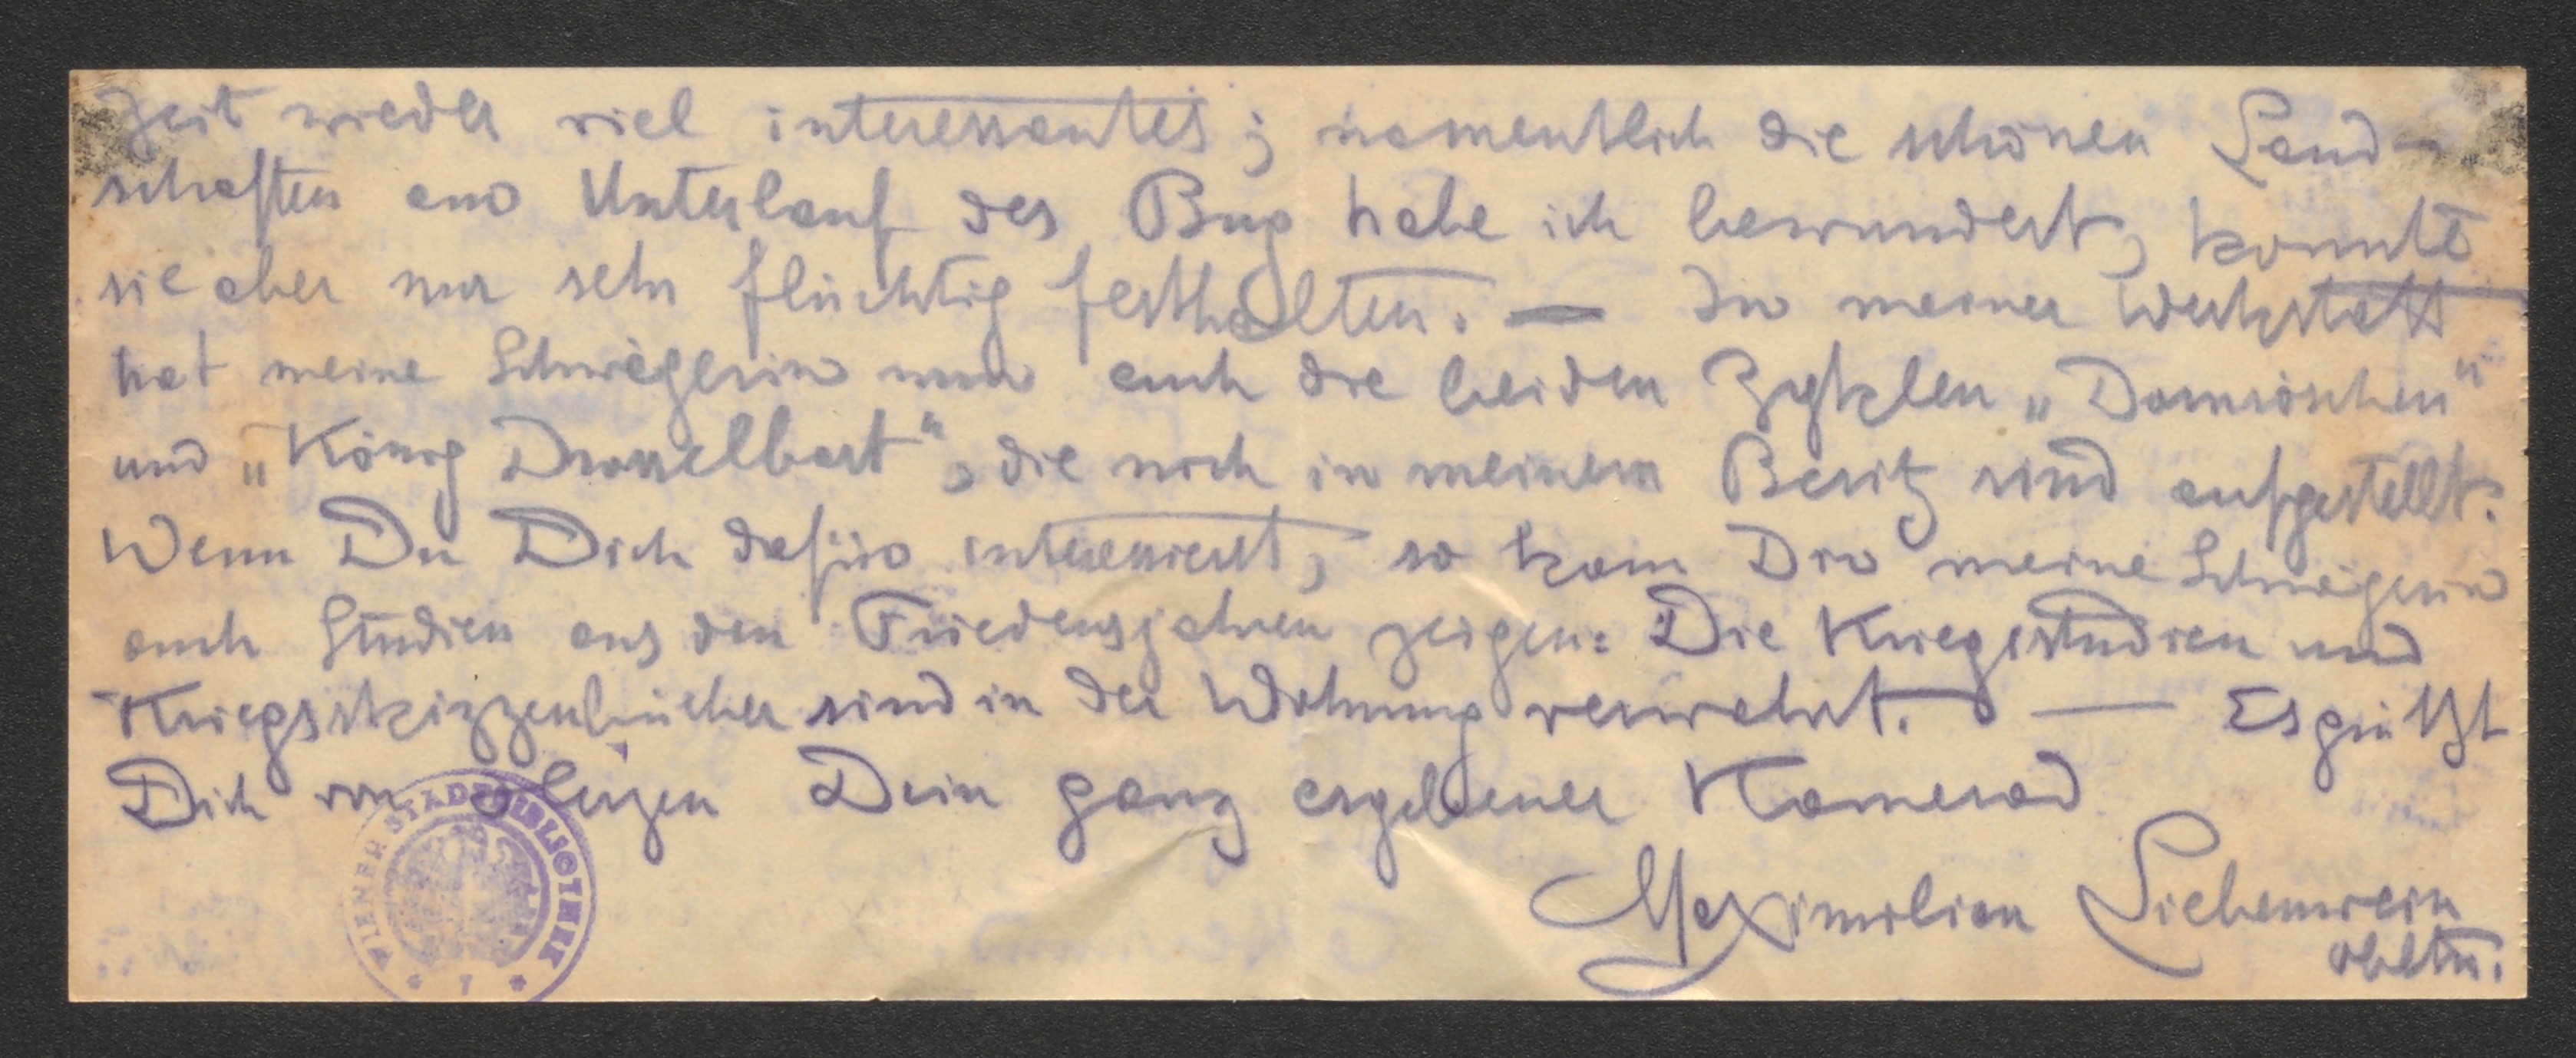 Zeit wieder viel interessantes; namentlich die schönen Land-
schaften am Unterlauf des Bug habe ich bewundert, konnte
sie aber nur sehr flüchtig festhalten. — In meiner Werkstatt
hat meine Schwägerin nun auch die beiden Zyklen „Dornröschen“
und „König Drosselbart“, die noch in meinem Besitz sind aufgestellt.
Wenn Du Dich dafür interessierst, so kann Dir meine Schwägerin
auch Studien aus den Friedensjahren zeigen. Die Kriegsstudien und
Kriegsskizzenbücher sind in der Wohnung verwahrt. — Es grüßt
Dich von Herzen Dein ganz ergebener Kamerad
Maximilian Liebenwein
Obltn.
WIENER STADTBIBLIOTHEK